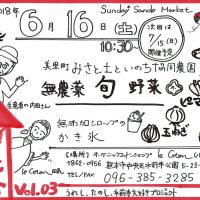 2018年
Sunday Sando Market
6月16日(土)
10:30~
次回は
7/15(日)
開催予定
美里町 みさと土といのち協同農園
無農薬 旬 野菜
生産者の内田さん
無添加シロップの
かき氷
玉ねぎ
le Coton_
【場所】オーガニックコットンショップ le Coton_
〒862-0956 熊本市中央区水前寺公園
TEL/FAX 096-385-3285
Vol.03
うれし、たのし、水前寺大好きプロジェクト